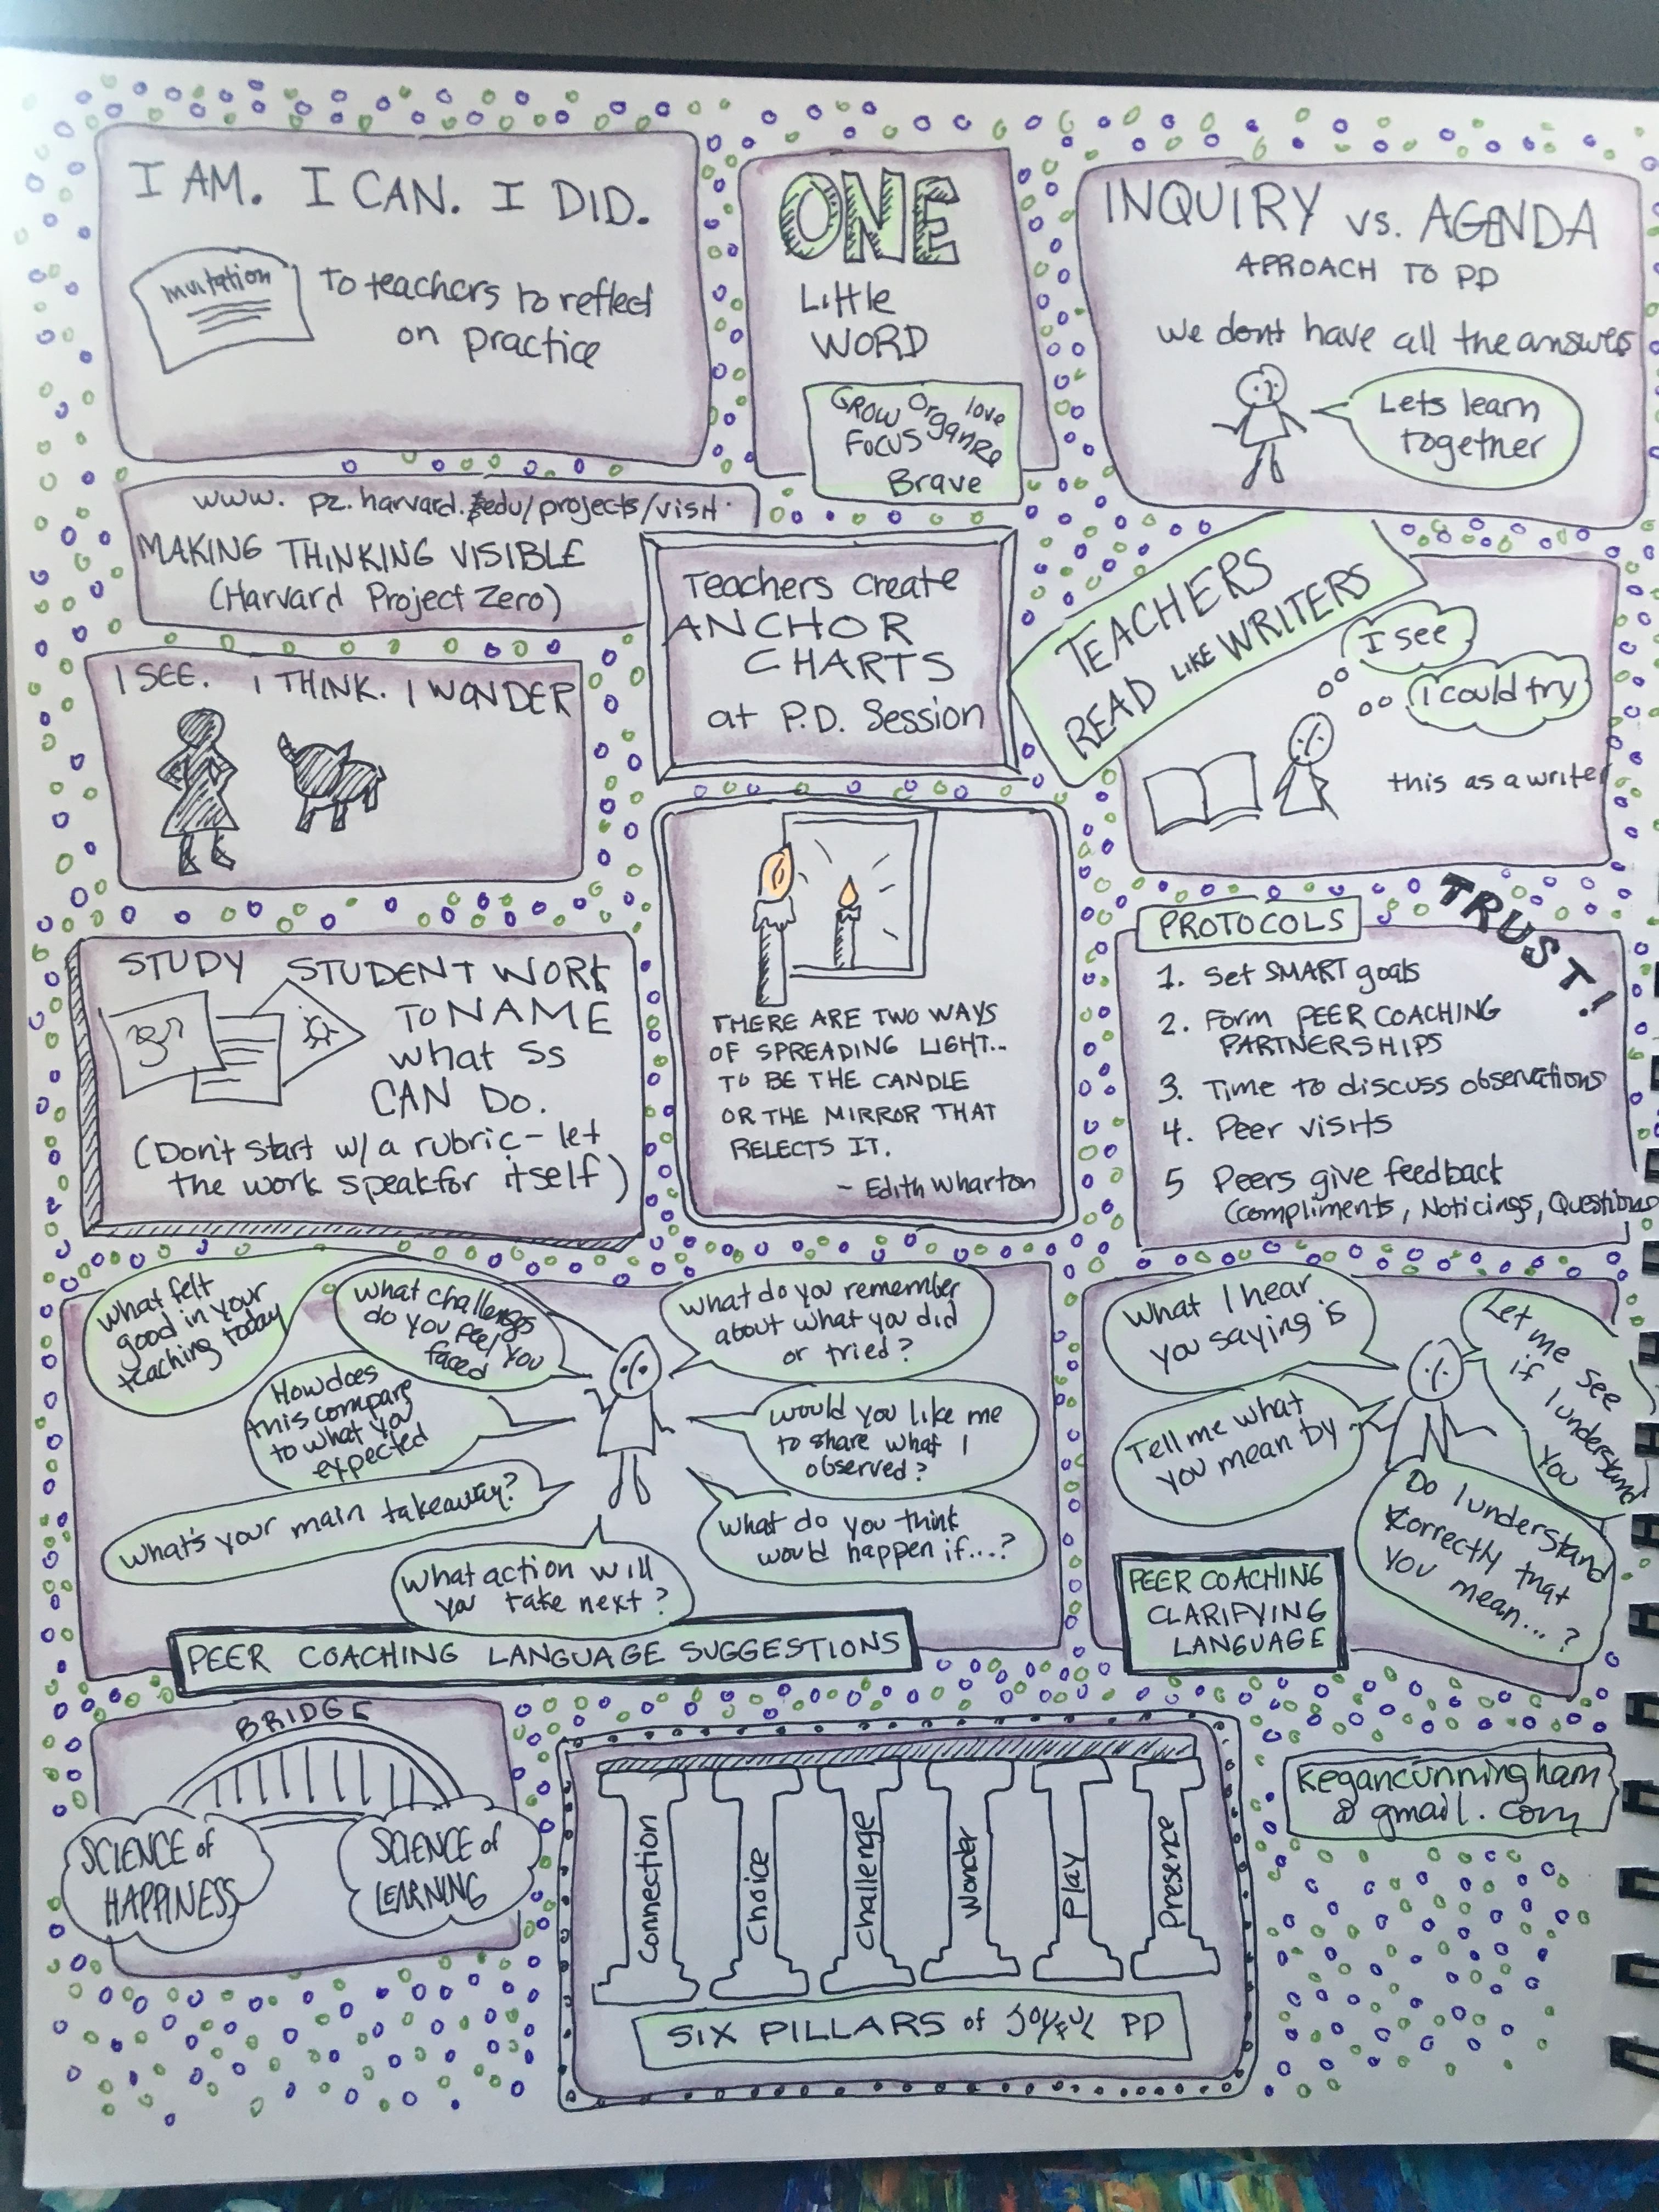 I AM. I CAN. I DID.
Invitation
To teachers to reflect
on practice
ONE
Little
WORD
GROW Organize love
FOCUS
Brave
INQUIRY vs. AGENDA
APROACH TO PD
We dont have all the answers
Lets learn
together
www. pz.harvard.edu/projects/visit
MAKING THINKING VISIBLE
(Harvard Project Zero)
Teachers create
ANCHOR
CHARTS
at P.D. Session
TEACHERS
READ LIKE WRITERS
I see
I could try
this as a writer
I SEE. I THINK. I WONDER
STUDY STUDENT WORK
TO NAME
what Ss
CAN DO.
(Don't start w/ a rubric - let
the work speak for itself)
THERE ARE TWO WAYS
OF SPREADING LIGHT...
TO BE THE CANDLE
OR THE MIRROR THAT
RELECTS IT.
~ Edith Wharton
TRUST!
PROTOCOLS
1. Set SMART goals
2. Form PEER COACHING
PARTNERSHIPS
3. Time to discuss observations
4. Peer visits
5 Peers give feedback
(compliments, Noticings, Questions
What felt
good in your
teaching today
What challenges
do you feel you
faced
How does
this compare
to what you
expected
What's your main takeaway?
What action will
you take next?
What do you remember
about what you did
or tried?
Would you like me
to share what I
observed?
What do you think
would happen if....?
PEER COACHING LANGUAGE SUGGESTIONS
What I hear
you saying is
Let me see
if I understand
you
Tell me what
you mean by
Do I understand
correctly that
you mean... ?
PEER COACHING
CLARIFYING
LANGUAGE
BRIDGE
SCIENCE of
HAPPINESS
SCIENCE of
LEARNING
Connection
Choice
Challenge
Wonder
Play
Presence
SIX PILLARS of JOYFUL PD
kegancunningham
@ gmail.com